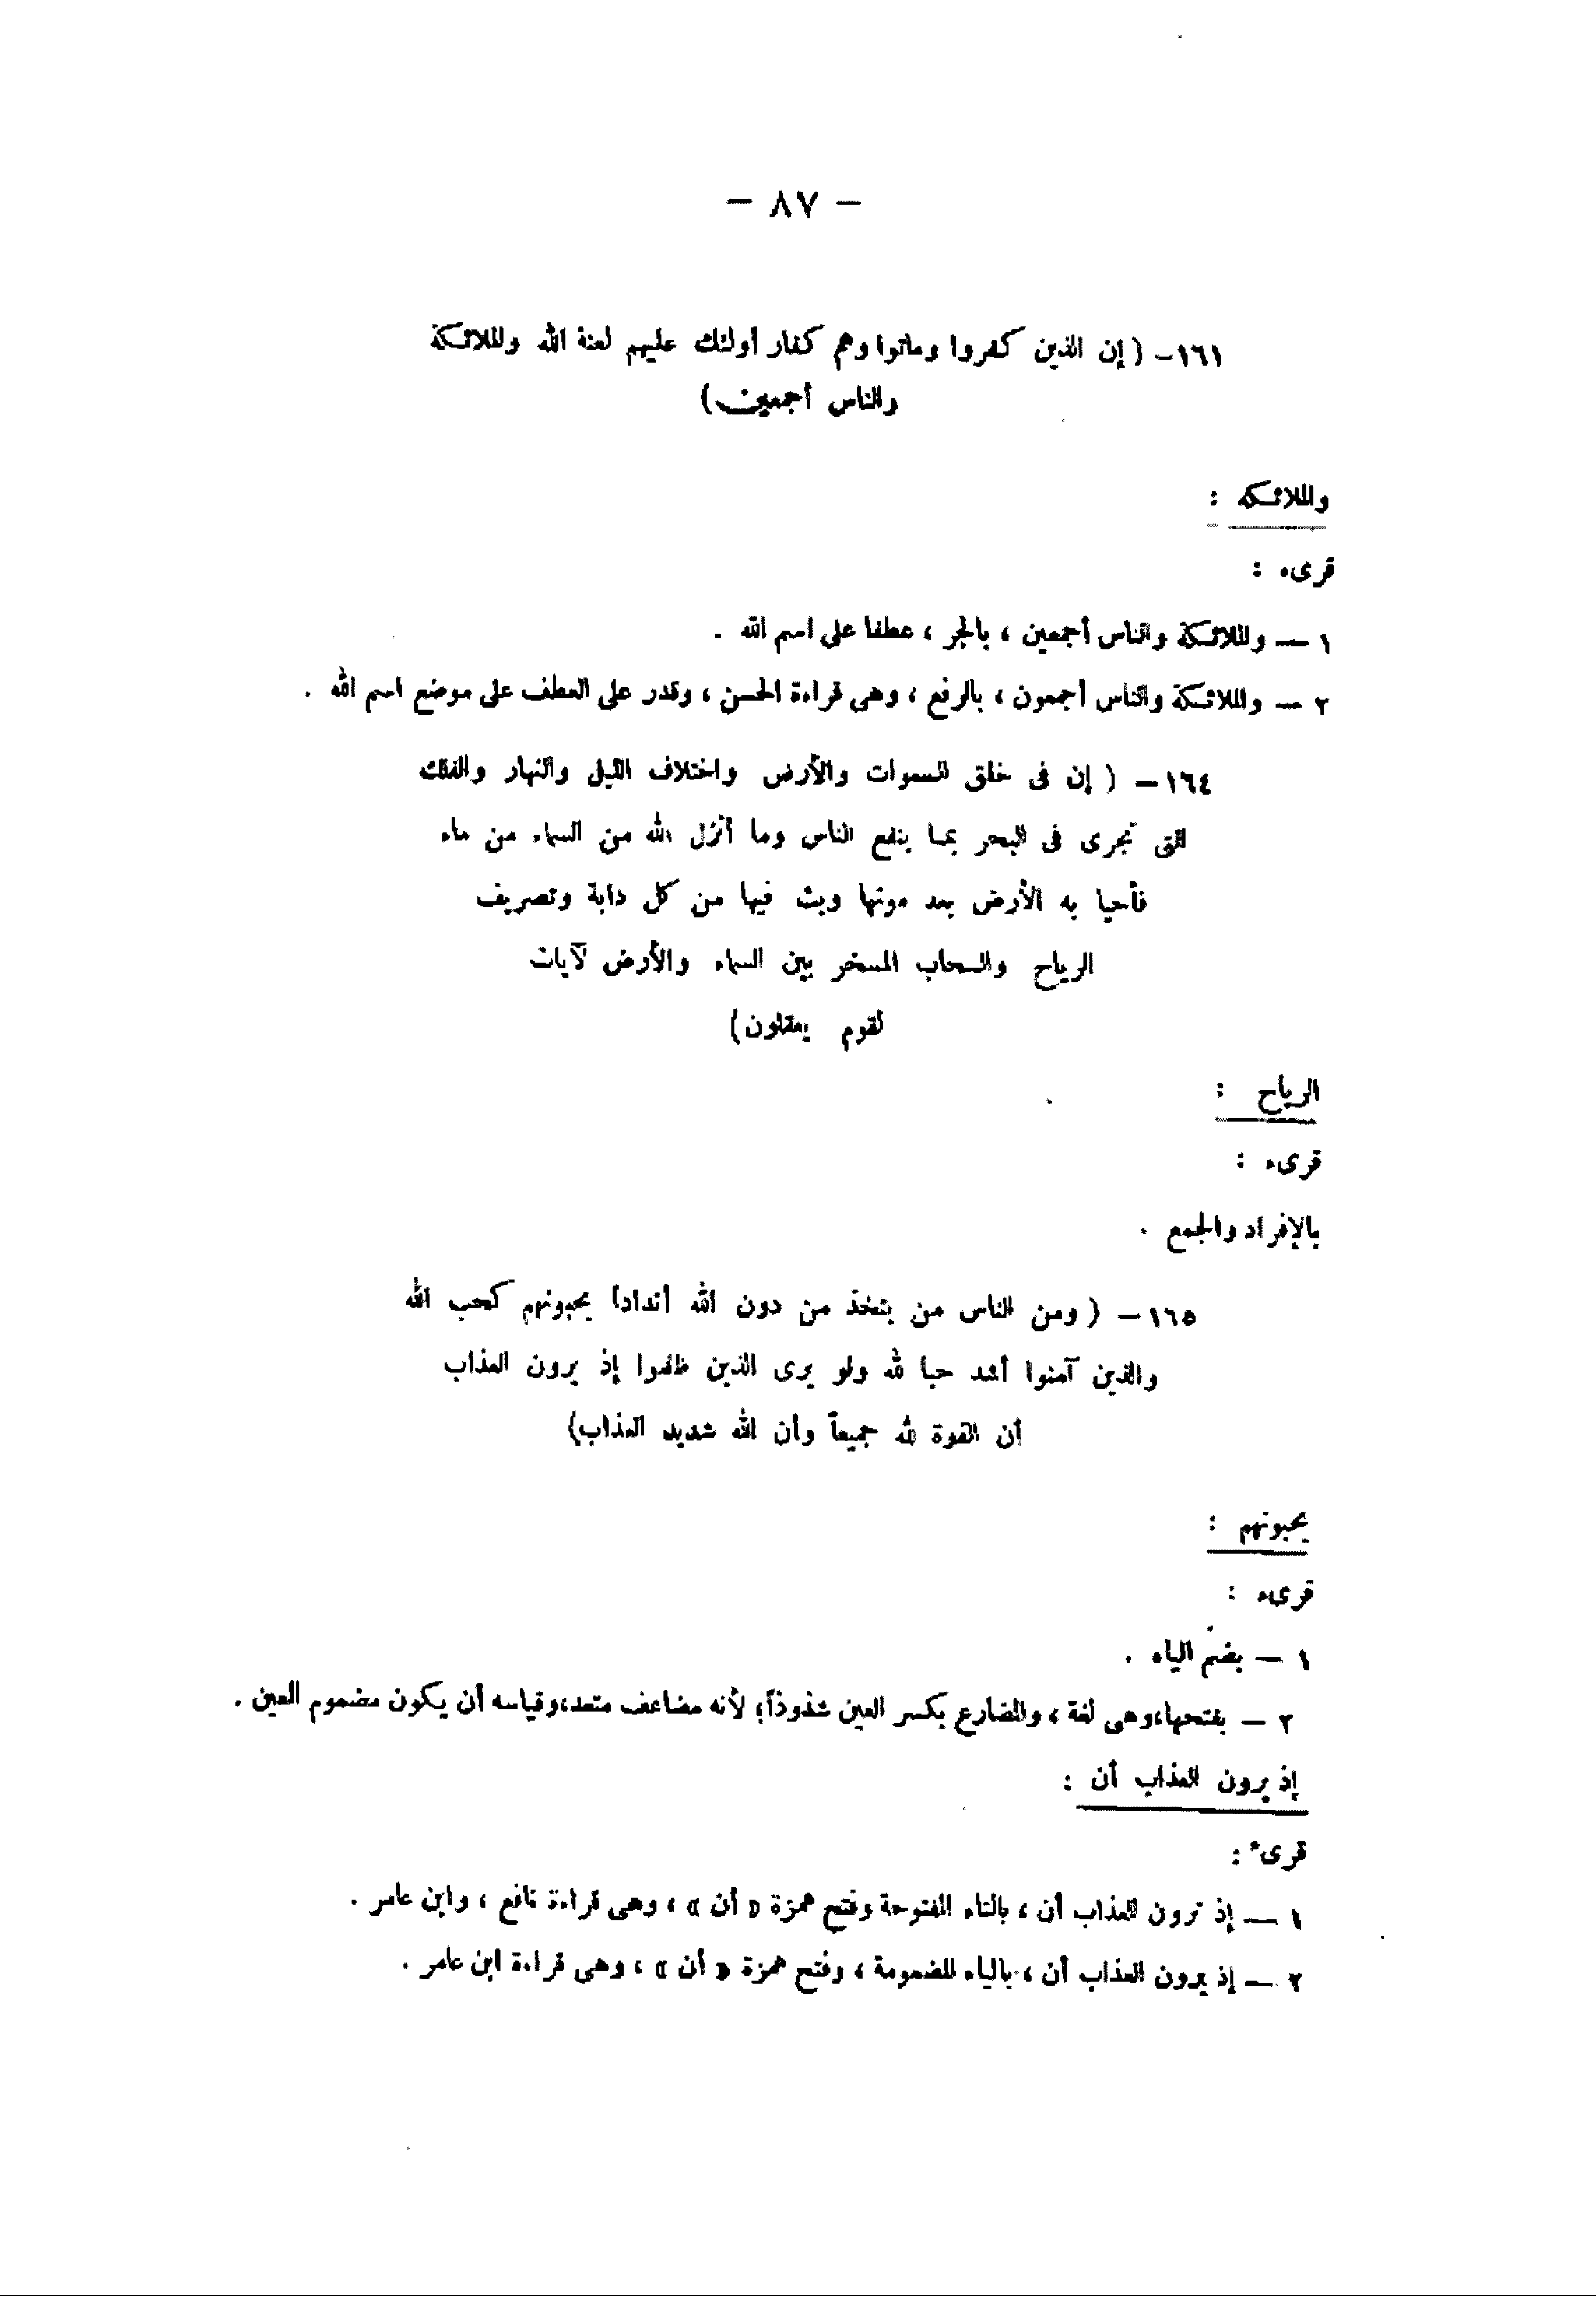 — ٨٧ —
١٦١- (إن الذين كفروا وماتوا وهم كفار أولئك عليهم لعنة الله والملائكة
والناس أجمعين)
والملائكة :
قرىء :
١ — والملائكة والناس أجمعين ، بالجر ، عطفا على اسم الله .
٢ — والملائكة والناس أجمعون ، بالرفع ، وهى قراءة الحسن ، وقدر على العطف على موضع اسم الله .
١٦٤ - ( إن فى خلق السموات والأرض واختلاف الليل والنهار والفلك
التى تجرى فى البحر بما ينفع الناس وما أنزل الله من السماء من ماء
فأحيا به الأرض بعد موتها وبث فيها من كل دابة وتصريف
الرياح والسحاب المسخر بين السماء والأرض لآيات
لقوم يعقلون)
الرياح :
قرىء :
بالإفراد والجمع .
١٦٥ - ( ومن الناس من يتخذ من دون الله أندادا يحبونهم كحب الله
والذين آمنوا أشد حبا لله ولو يرى الذين ظلموا إذ يرون العذاب
أن القوة لله جميعاً وأن الله شديد العذاب)
يحبونهم :
قرىء :
١ — بضم الياء .
٢ — بفتحها،وهى لغة ، والمضارع بكسر العين شذوذاً؛ لأنه مضاعف متعد،وقياسه أن يكون مضموم العين .
إذ يرون العذاب أن :
قرىء :
١ — إذ ترون العذاب أن ، بالتاء المفتوحة وفتح همزة « أن » ، وهى قراءة نافع ، وابن عامر .
٢ — إذ يرون العذاب أن ، بالياء المضمومة ، وفتح همزة « أن » ، وهى قراءة ابن عامر .